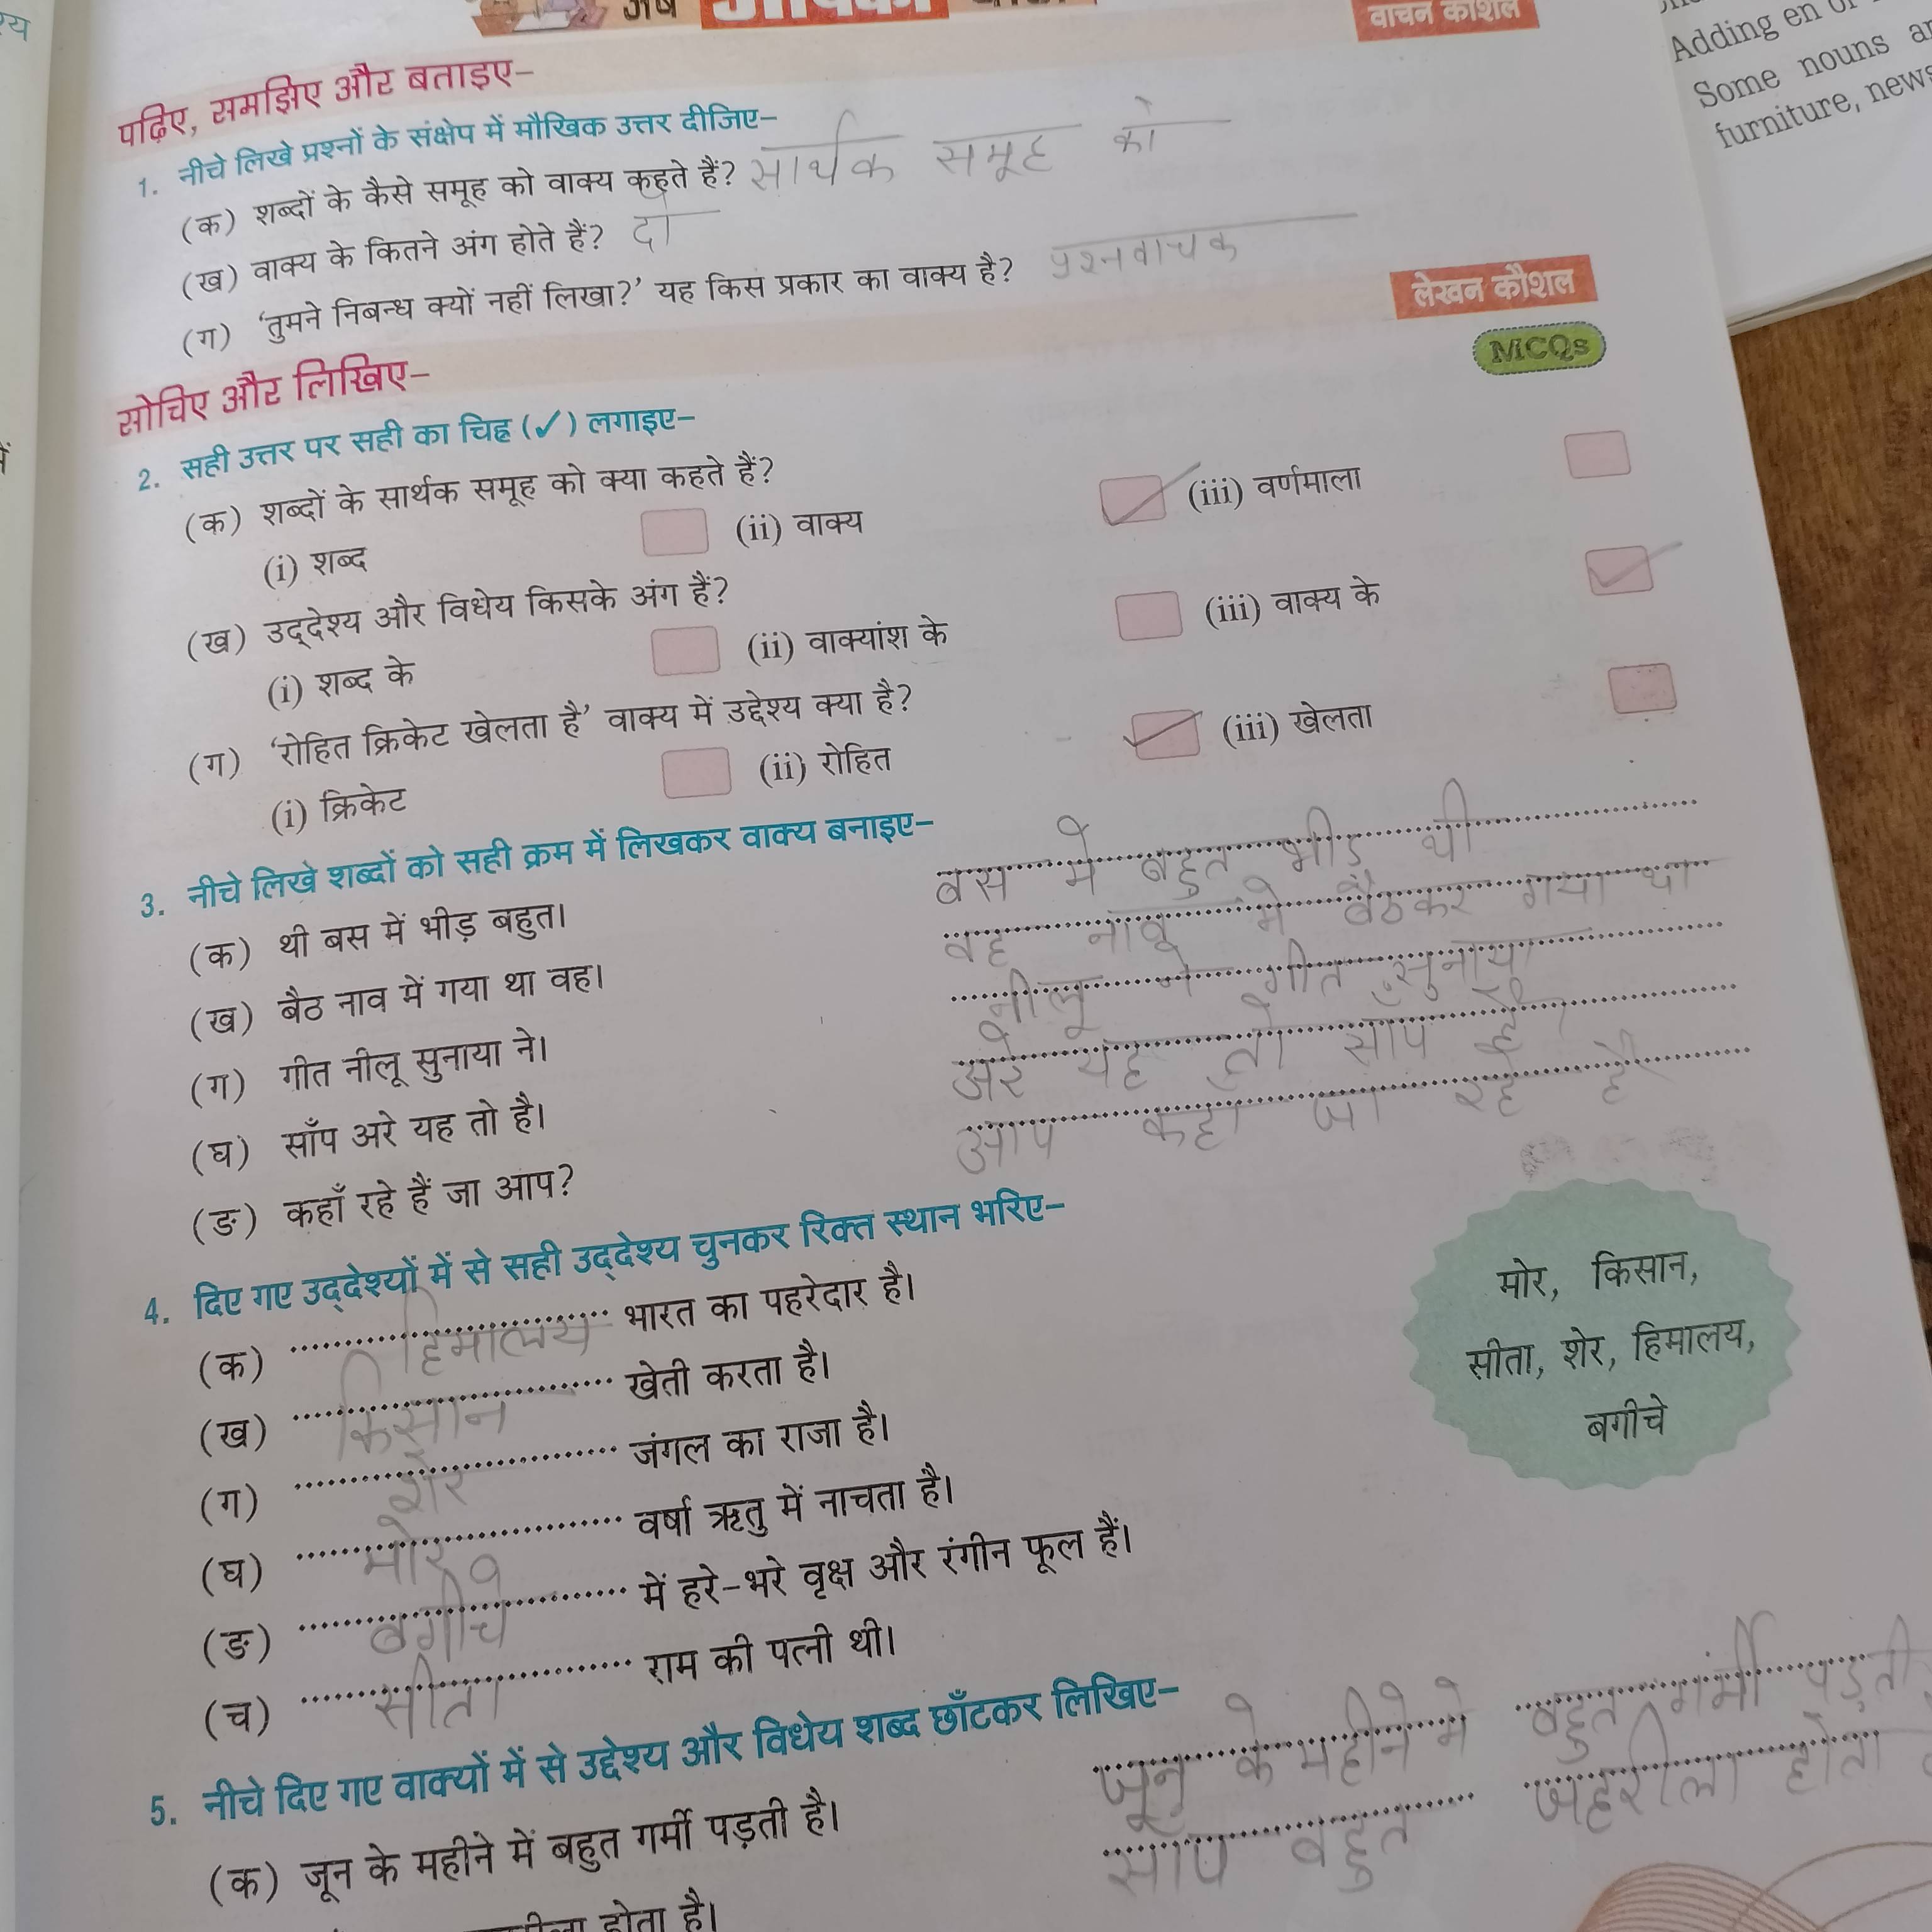 वाचन कौशल
Adding en or
Some nouns
furniture, news
पढ़िए, समझिए और बताइए–
1. नीचे लिखे प्रश्नों के संक्षेप में मौखिक उत्तर दीजिए–
(क) शब्दों के कैसे समूह को वाक्य कहते हैं? सार्थक समूह को
(ख) वाक्य के कितने अंग होते हैं? दो
(ग) ‘तुमने निबन्ध क्यों नहीं लिखा?’ यह किस प्रकार का वाक्य है? प्रश्नवाचक
लेखन कौशल
सोचिए और लिखिए–
MCQs
2. सही उत्तर पर सही का चिह्न (✓) लगाइए–
(क) शब्दों के सार्थक समूह को क्या कहते हैं?
(i) शब्द (ii) वाक्य ✓ (iii) वर्णमाला
(ख) उद्‌देश्य और विधेय किसके अंग हैं?
(i) शब्द के (ii) वाक्यांश के (iii) वाक्य के ✓
(ग) ‘रोहित क्रिकेट खेलता है’ वाक्य में उद्देश्य क्या है?
(i) क्रिकेट (ii) रोहित ✓ (iii) खेलता
3. नीचे लिखे शब्दों को सही क्रम में लिखकर वाक्य बनाइए–
(क) थी बस में भीड़ बहुत। बस मे बहुत भीड़ थी
(ख) बैठ नाव में गया था वह। वह नाव मे बैठकर गया था
(ग) गीत नीलू सुनाया ने। नीलू ने गीत सुनाया
(घ) साँप अरे यह तो है। अरे यह तो साँप है।
(ङ) कहाँ रहे हैं जा आप? आप कहा जा रहे है
4. दिए गए उद्‌देश्यों में से सही उद्‌देश्य चुनकर रिक्त स्थान भरिए–
(क) हिमालय भारत का पहरेदार है।
(ख) किसान खेती करता है।
(ग) शेर जंगल का राजा है।
(घ) मोर वर्षा ऋतु में नाचता है।
(ङ) बगीचे में हरे-भरे वृक्ष और रंगीन फूल हैं।
(च) सीता राम की पत्नी थी।
मोर, किसान,
सीता, शेर, हिमालय,
बगीचे
5. नीचे दिए गए वाक्यों में से उद्देश्य और विधेय शब्द छाँटकर लिखिए–
(क) जून के महीने में बहुत गर्मी पड़ती है। जून के महीने मे बहुत गंर्मी पड़ती
होता है। साप बहुत जहरीला होता